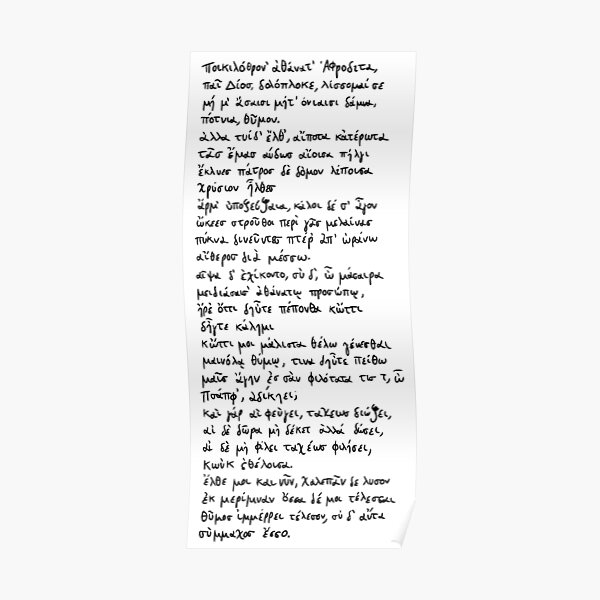 Ποικιλόθρον' ἀθάνατ' Ἀφροδετα,
παῖ Δίοσ, δολόπλοκε, λίσσομαί σε
μή μ' ἄσαισι μήτ' ὀνιαισι δάμνα,
πότνια, θῦμον.
ἀλλα τυίδ' ἔλθ', αἴποτα κἀτέρωτα
τᾶσ ἔμασ αύδωσ αἴοισα πήλγι
ἔκλυεσ πάτροσ δὲ δόμον λίποισα
χρύσιον ἦλθεσ
ἄρμ' ὐποζεύξαια, κάλοι δέ σ' ἆγον
ὤκεεσ στροῦθοι περὶ γᾶσ μελαίνασ
πύκνα δινεῦντεσ πτέρ' ἀπ' ὠράνω
αἴθεροσ διὰ μέσσω.
αῖψα δ' ἐχίκοντο, σὺ δ', ὦ μάσαιρα
μειδιάσασ' ἀθάνατῳ προσώπῳ,
ἤρε' ὄττι δηὖτε πέπονθα κὤττι
δηὖτε κάλημι
κὤττι μοι μάλιστα θέλω γένεσθαι
μαινόλᾳ θύμῳ, τινα δηὖτε πείθω
μαῖσ ἄγην ἐσ σὰν φιλότατα τισ τ, ὦ
Πσάπφ', ἀδίκηει;
καὶ γάρ αἰ φεύγει, ταχεωσ διώξει,
αἰ δὲ δῶρα μὴ δέκετ ἀλλά δώσει,
αἰ δὲ μὴ φίλει ταχέωσ φιλήσει,
κωὐκ ἐθέλοισα.
ἔλθε μοι και νῦν, χαλεπᾶν δε λυσον
ἐκ μερίμναν ὄσσα δέ μοι τέλεσσαι
θῦμοσ ἰμμέρρει τέλεσον, σὐ δ' αὔτα
σὺμμαχοσ ἔσσο.